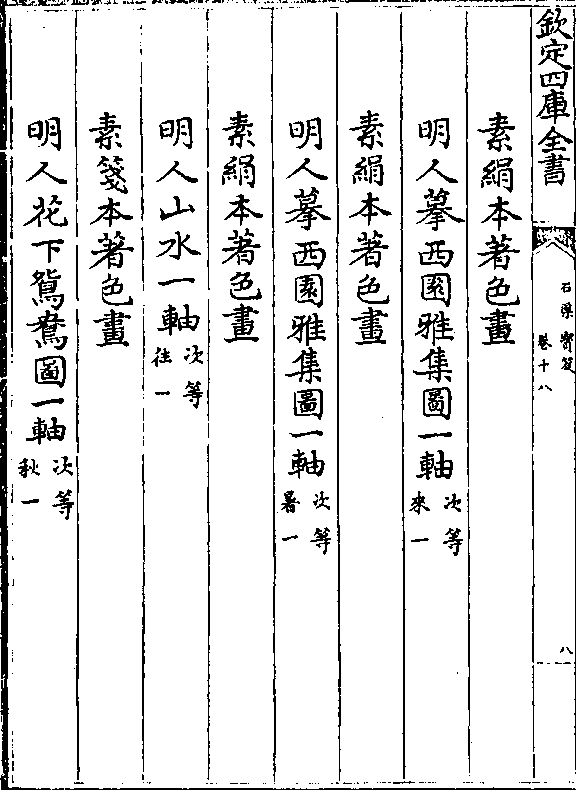 欽定四庫全書
石渠寳笈
卷十八
八
素絹本著色畫
明人摹西園雅集圖一軸次等來一
素絹本著色畫
明人摹西園雅集圖一軸次等暑一
素絹本著色畫
明人山水一軸次等往一
素箋本著色畫
明人花下鴛鴦圖一軸次等秋一